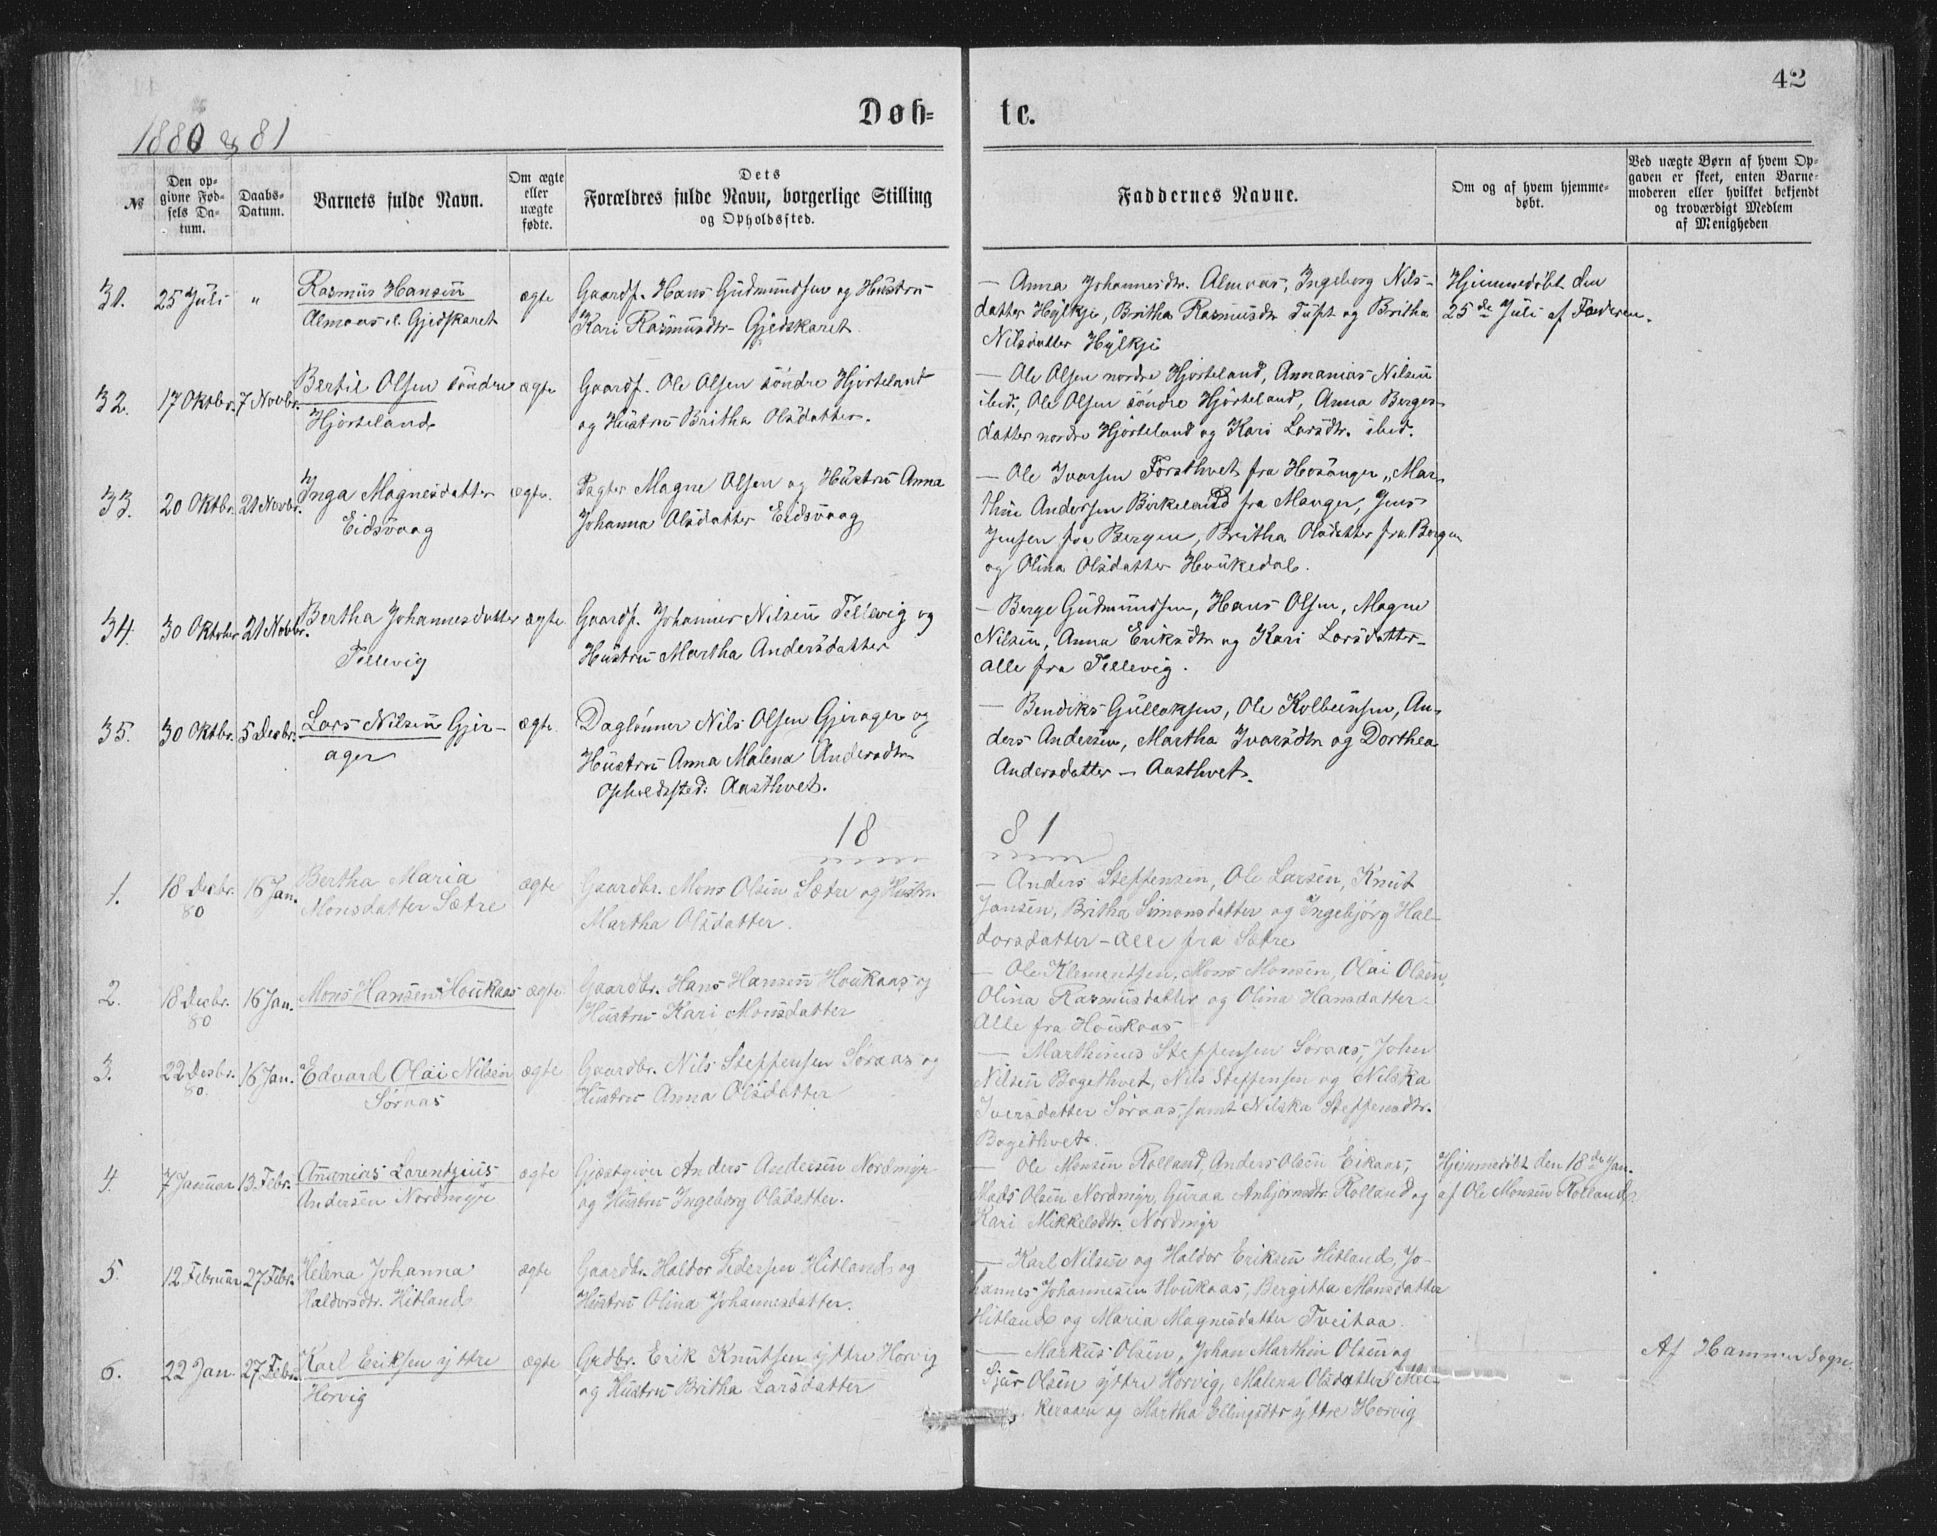 42
Døb-
te.
1880 & 81
№
Den op-
givne Fød-
sels Da-
tum.
Daabs-
Datum.
Barnets fulde Navn.
Om ægte
eller
uægte
fødte.
Dets
Forældres fulde Navn, borgerlige Stilling
og Opholdssted.
Faddernes Navne.
Om og af hvem hjemme-
døbt.
Ved uægte Børn af hvem Op-
gaven er skeet, enten Barne-
moderen eller hvilket bekjendt
og troværdigt Medlem
af Menigheden
31.
25 Juli
"
Rasmus Hansen
Almaas e. Gjedskaret
ægte
Gaardf. Hans Gudmundsen og Hustru
Kari Rasmusdtr Gjedskaret.
— Anna Johannesdtr. Almaas, Ingeborg Nils-
datter Hylkje, Britha Rasmusdtr Tuft og Britha
Nilsdatter Hylkje
Hjemmedøbt den
25de Juli af Faderen.
32.
17 Oktbr.
7 Novbr.
Bertil Olsen søndre
Hjorteland
ægte
Gaardf. Ole Olsen søndre Hjorteland
og Hustru Britha Olsdatter.
— Ole Olsen nordre Hjorteland, Annanias Nilsen
ibid., Ole Olsen søndre Hjorteland, Anna Berges-
datter nordre Hjorteland og Kari Larsdtr. ibid.
33.
20 Oktbr.
21 Novbr.
Inga Magnesdatter
Eidsvaag
ægte.
Pagter Magne Olsen og Hustru Anna
Johanna Olsdatter Eidsvaag
— Ole Ivarsen Forsthvet fra Hosanger, Mar-
thin Andersen Birkeland fra Manger, Jens
Jensen fra Bergen, Britha Olsdatter fra Bergen
og Olina Olsdatter Houkedal.
34.
30 Oktober
21 Novbr.
Bertha Johannesdatter
Tellevig
ægte.
Gaardf. Johannes Nilsen Tellevig og
Hustru Martha Andersdatter
— Berge Gudmundsen, Hans Olsen, Magne
Nilsen, Anna Eriksdtr og Kari Larsdatter—
alle fra Tellevig.
35.
30 Oktbr.
5 Desbr.
Lars Nilsen Gjer-
ager
ægte.
Dagløнner Nils Olsen Gjerager og
Hustru Anna Malena Andersdtr
Opholdssted: Aasthvet.
— Bendiks Gullaksen, Ole Kolbeinsen, An-
ders Andersen, Martha Ivarsdtr og Dorthea
Andersdatter — Aasthvet.
18
81
1.
18 Desbr.
80
16 Jan.
Bertha Maria
Monsdatter Sætre
ægte
Gaardbr. Mons Olsen Sætre og Hustru
Martha Olsdatter.
— Anders Steffensen, Ole Larsen, Knut
Jansen, Britha Simonsdatter og Ingebjørg Hal-
dorsdatter — alle fra Sætre
2.
18 Desbr.
80
16 Jan.
Mons Hansen Houkaas
ægte
Gaardbr. Hans Hansen Houkaas og
Hustru Kari Monsdatter
— Ole Klementsen, Mons Monsen, Olai Olsen,
Olina Rasmusdatter og Olina Hansdatter—
Alle fra Houkaas
3.
22 Desbr.
80.
16 Jan.
Edvard Olai Nilsen
Søraas
ægte
Gaardbr. Nils Steffensen Søraas og
Hustru Anna Olsdatter
— Marthinus Steffensen Søraas, John
Nilsen Bogethvet, Nils Steffensen og Nilska
Iversdatter Søraas, samt Nilska Steffensdtr.
Bogethvet.
4.
7 Januar
13. Febr.
Ananias Lorentzius
Andersen Nordmyr
ægte
Gjæstgiver Anders Andersen Nordmyr
og Hustru Ingeborg Olsdatter.
— Ole Monsen Rolland, Anders Olsen Eikaas,
Mads Olsen Nordmyr, Guraa Anbjørnsdtr. Rolland og
Kari Mikkelsdtr. Nordmyr
Hjemmedøbt den 18de Jan.
af Ole Monsen Rolland.
5.
12 Februar
27 Febr.
Helena Johanna
Haldorsdtr. Hitland
ægte
Gaardbr. Haldor Pedersen Hitland og
Hustru Olina Johannesdatter.
— Karl Nilsen og Haldor Eriksen Hitland, Jo-
hannes Johannesen Houkaas, Bergitta Monsdatter
Hitland og Maria Magnesdatter Tveitaa.
6.
22 Jan
27 Febr.
Karl Eriksen ÿttre
Horvig
ægte
Grdbr. Erik Knutsen ÿttre Horvig
og Hustru Britha Larsdatter
— Markus Olsen, Johan Marthin Olsen og
Sjur Olsen ÿttre Horvig, Malena Olsdatter
og Martha Ellingsdtr ÿttre Horvig
Af Hammer Sogn.